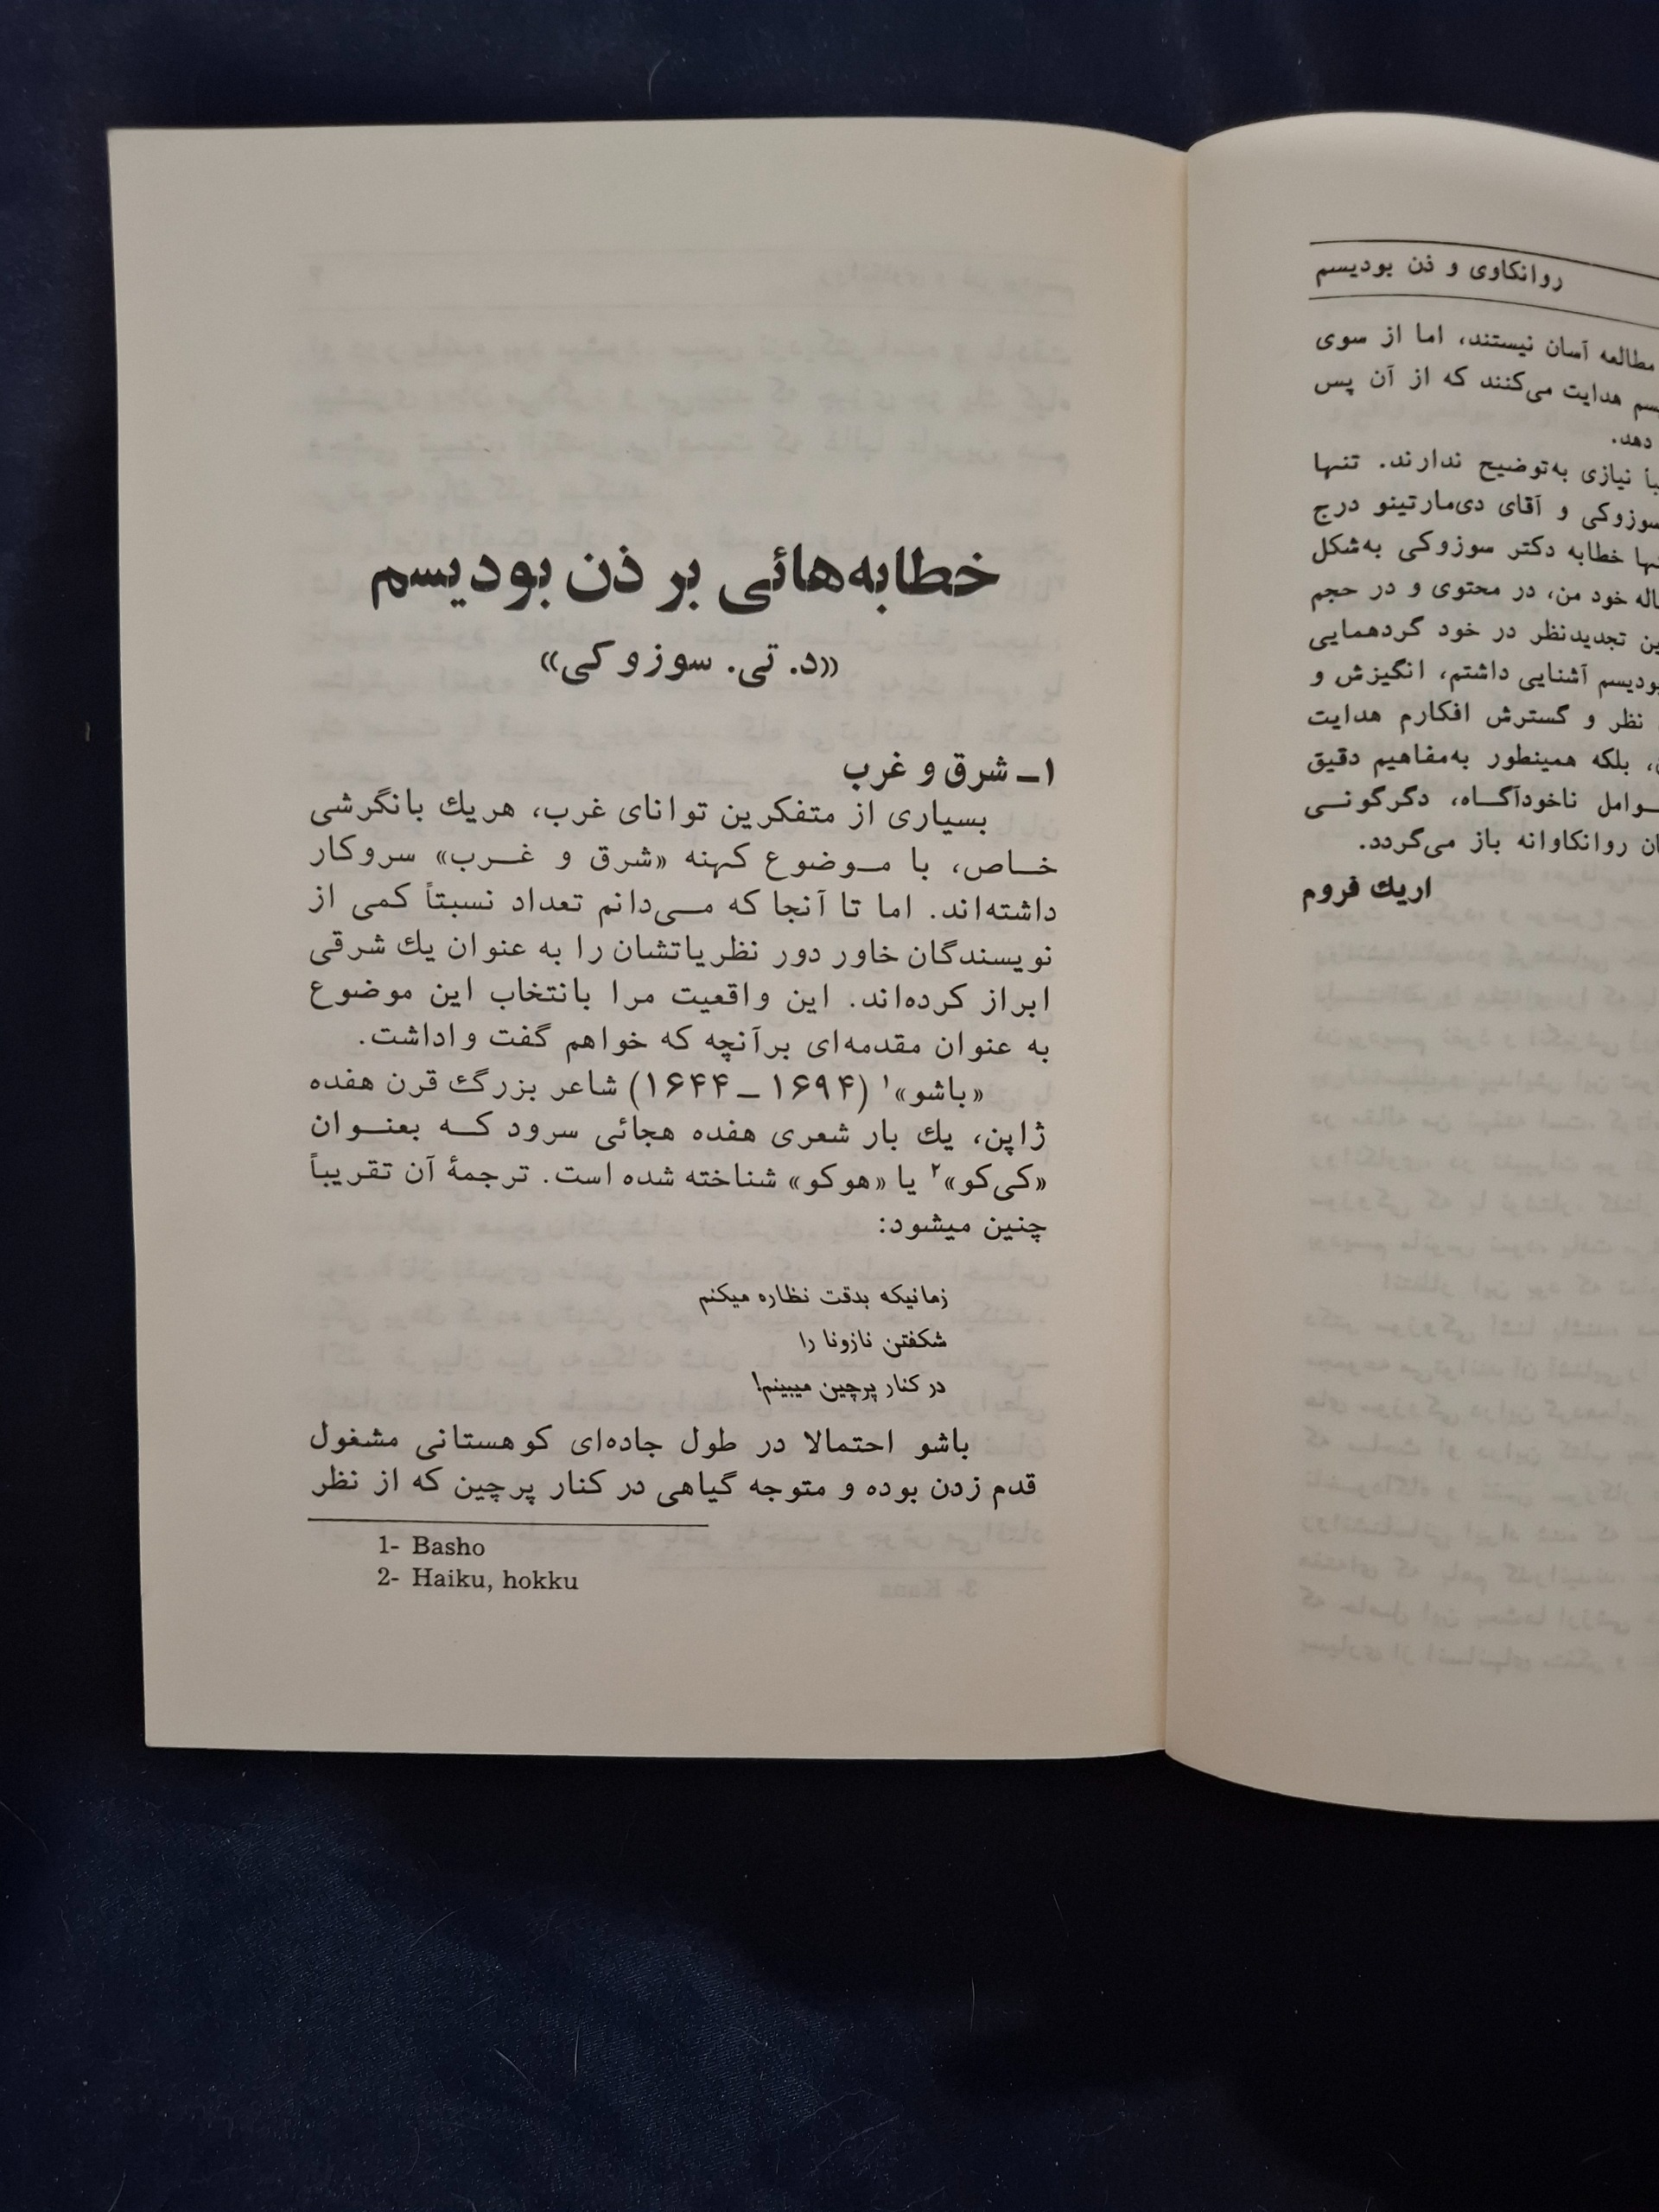 روانکاوی و ذن بودیسم
مطالعه آسان نیستند، اما از سوی
هدایت می‌کنند که از آن پس
دهد.
نیازی به‌توضیح ندارند. تنها
سوزوکی و آقای دی‌مارتینو درج
خطابه دکتر سوزوکی به‌شکل
خود من، در محتوی و در حجم
تجدیدنظر در خود گردهمایی
بودیسم آشنایی داشتم، انگیزش و
نظر و گسترش افکارم هدایت
، بلکه همینطور به‌مفاهیم دقیق
ناخودآگاه، دگرگونی
روانکاوانه باز می‌گردد.
اریك فروم
خطابه‌هائی بر ذن بودیسم
«د. تی. سوزوکی»
۱ـ شرق و غرب
بسیاری از متفکرین توانای غرب، هریك بانگرشی
خاص، با موضوع کهنه «شرق و غرب» سروکار
داشته‌اند. اما تا آنجا که می‌دانم تعداد نسبتاً کمی از
نویسندگان خاور دور نظریاتشان را به عنوان یك شرقی
ابراز کرده‌اند. این واقعیت مرا بانتخاب این موضوع
به عنوان مقدمه‌ای برآنچه که خواهم گفت واداشت.
«باشو»۱ (۱۶۹۴ ـ ۱۶۴۴) شاعر بزرگ قرن هفده
ژاپن، یك بار شعری هفده هجائی سرود که بعنوان
«کی‌کو»۲ یا «هوکو» شناخته شده است. ترجمهٔ آن تقریباً
چنین میشود:
زمانیکه بدقت نظاره میکنم
شکفتن نازونا را
در کنار پرچین میبینم!
باشو احتمالا در طول جاده‌ای کوهستانی مشغول
قدم زدن بوده و متوجه گیاهی در کنار پرچین که از نظر
1- Basho
2- Haiku, hokku